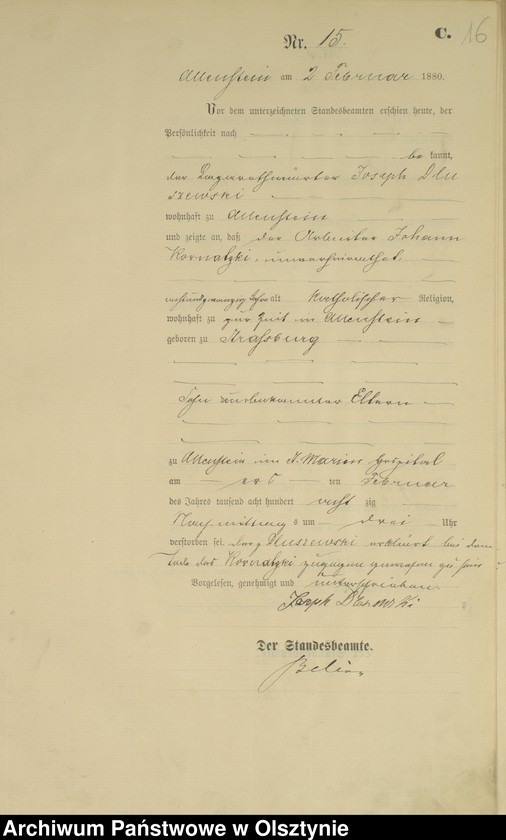 C. 16
Nr. 15.
Allenstein am 2 Februar 1880.
Vor dem unterzeichneten Standesbeamten erschien heute, der
Persönlichkeit nach
be kannt,
der Lazarethwärter Joseph Dlu
szewski
wohnhaft zu Allenstein
und zeigte an, daß der Arbeiter Johann
Kornatzki, unverheirathet
alt katholischer Religion,
wohnhaft zu zur Zeit in Allenstein
geboren zu Straßburg
Sohn unbekannter Eltern
zu Allenstein im St. Marien Hospital
am ers ten Februar
des Jahres tausend acht hundert acht zig
Nachmittag s um drei Uhr
verstorben sei. Dluszewski erklärt bei dem
Tode des Kornatzki zugegen gewesen zu sein
Vorgelesen, genehmigt und unterschrieben
Joseph
Der Standesbeamte.
Archiwum Państwowe w Olsztynie